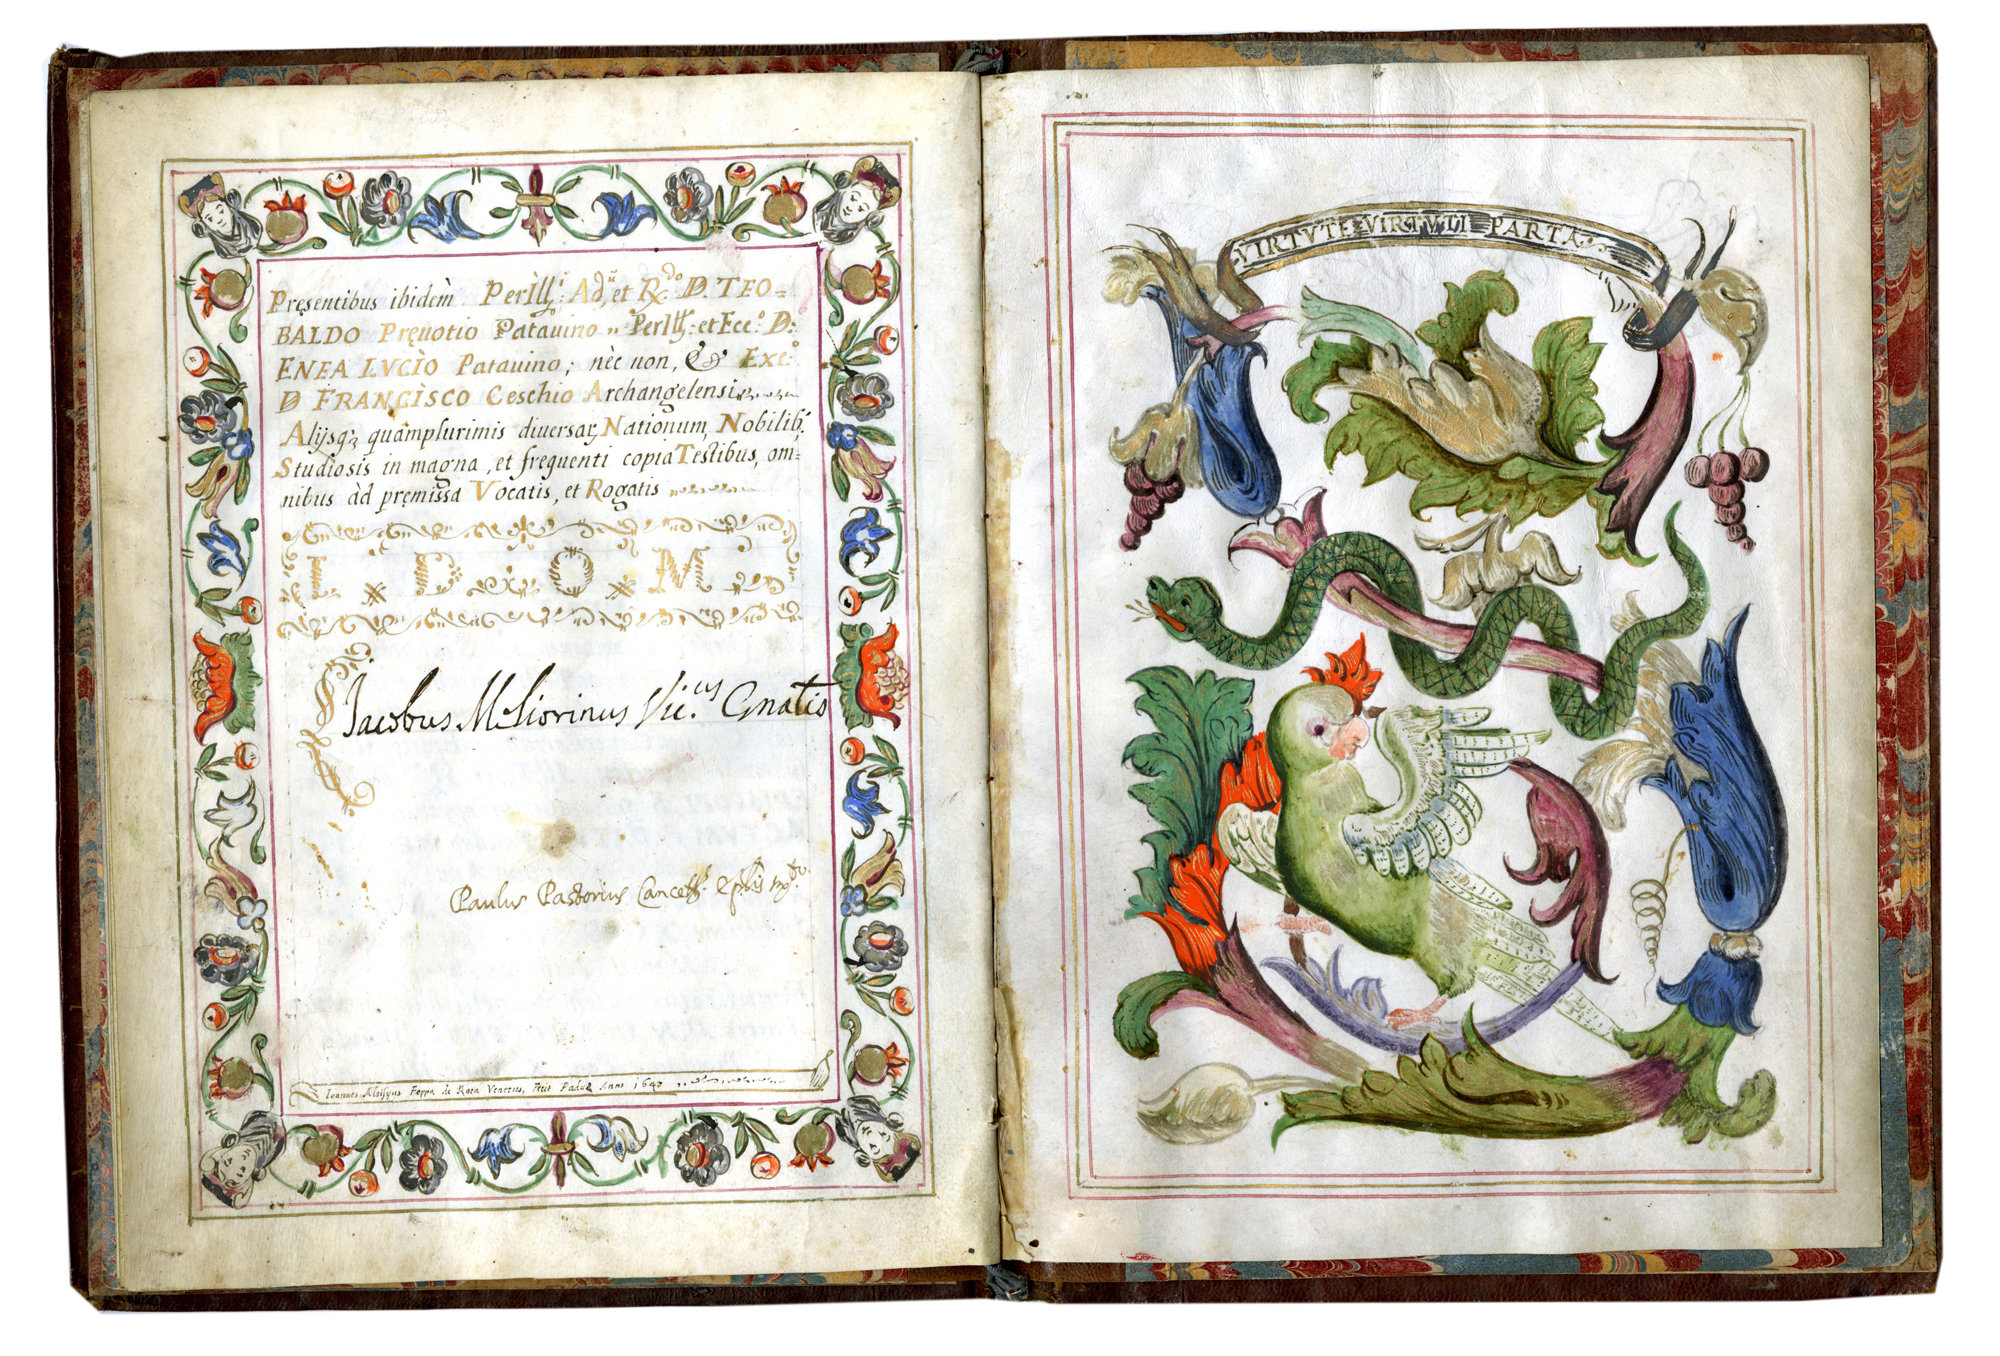 Presentibus ibidem Perill: Ad. et R.do D. TEO-
BALDO Pręuotio Patauino, Perill: et Ecc. D:
ENEA LVCÌO Patauino; nèc non, & Exc:
D FRANCÌSCO Ceschio Archangelensi
Alijsq; quamplurimis diuersar, Nationum, Nobilib,
Studiosis in magna, et frequenti copia Testibus, om-
nibus àd pręmissa Vocatis, et Rogatis
I. D. O. M.
Jacobus Meliorinus Vic.us Gnãtis
Paulus Pastorius Cancell.s
Ioannes Aloysius Foppa de Rota Venetus, Fecit Paduę Anno 1647
VIRTVTE VIRTVTI PARTA